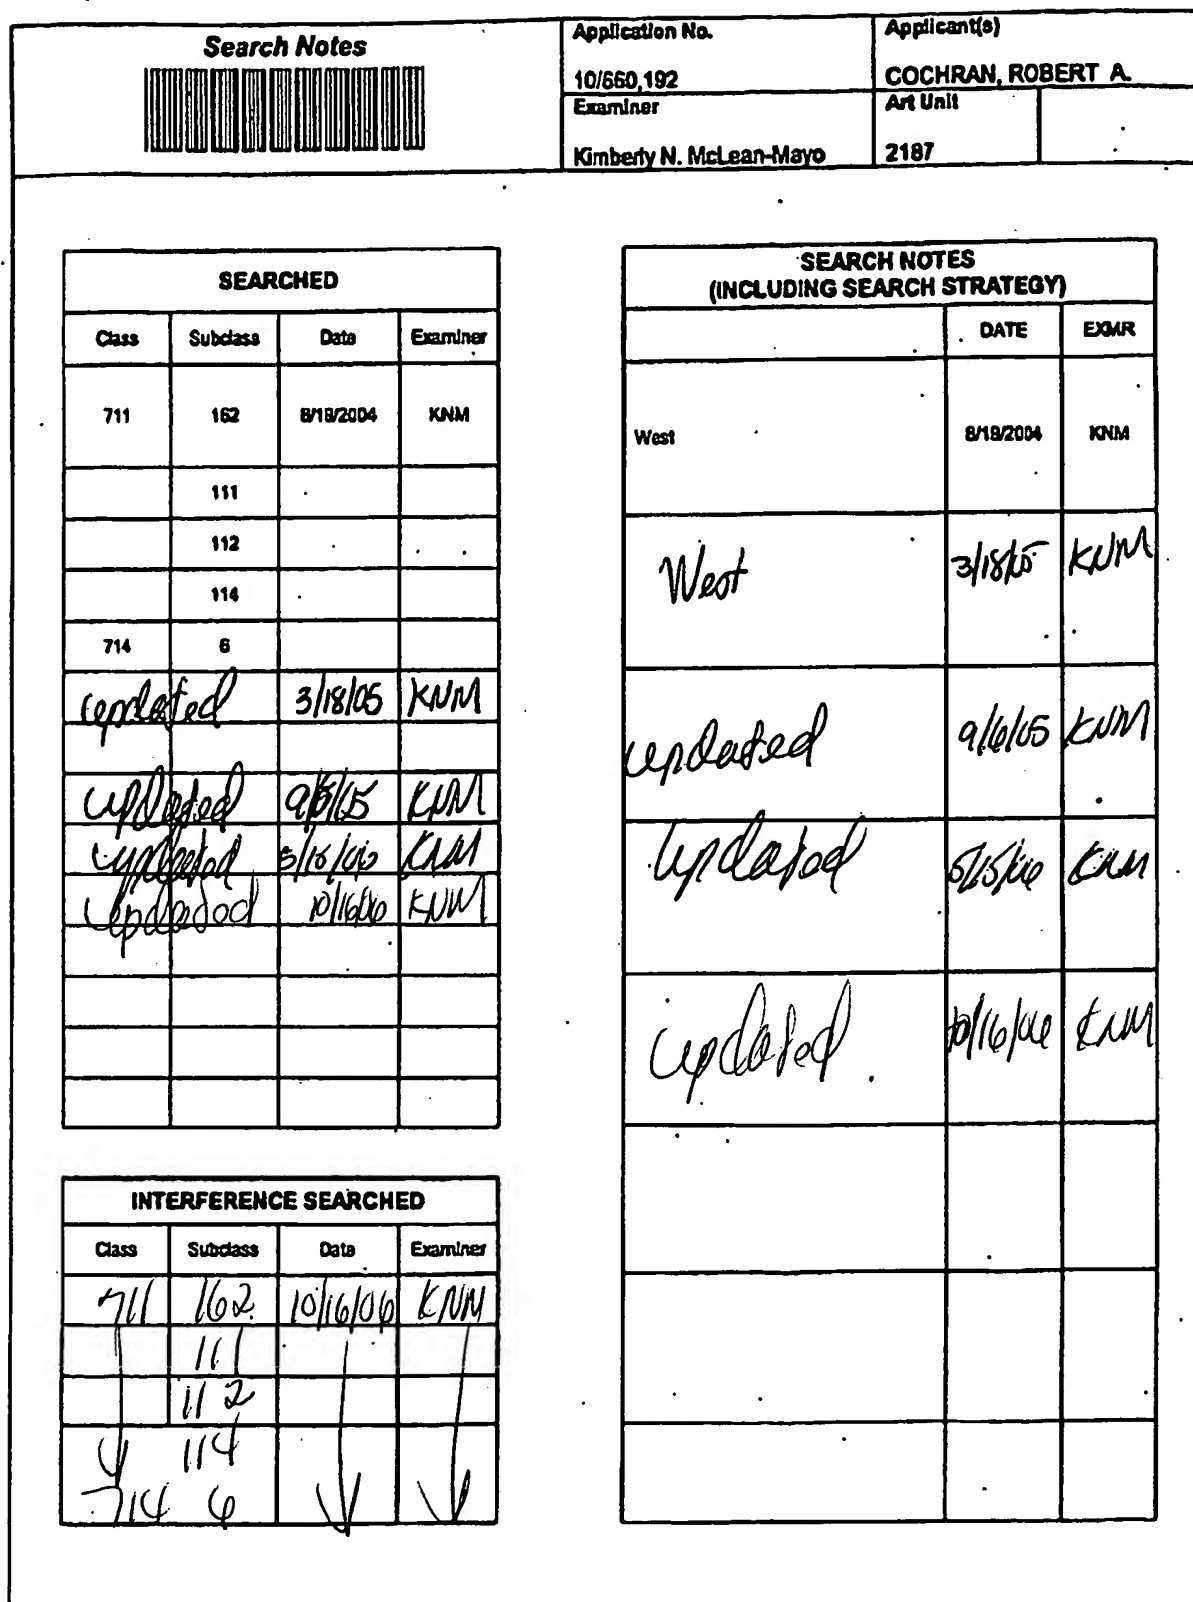 Search Notes
Application No.
Applicant(s)
10/660,192
COCHRAN, ROBERT A.
Examiner
Art Unit
Kimberly N. McLean-Mayo
2187
SEARCHED
Class Subclass Date Examiner
711 162 8/18/2004 KNM
111
112
114
714 6
updated 3/18/05 KNM
updated KNM
updated 5/15/06 KNM
updated 10/16/06 KNM
INTERFERENCE SEARCHED
Class Subclass Date Examiner
711 162 10/16/06 KNM
111
112
114
714 6
SEARCH NOTES
(INCLUDING SEARCH STRATEGY)
DATE EXMR
West 8/18/2004 KNM
West 3/18/05 KNM
updated 9/6/05 KNM
updated 5/15/06 KNM
updated 10/16/06 KNM